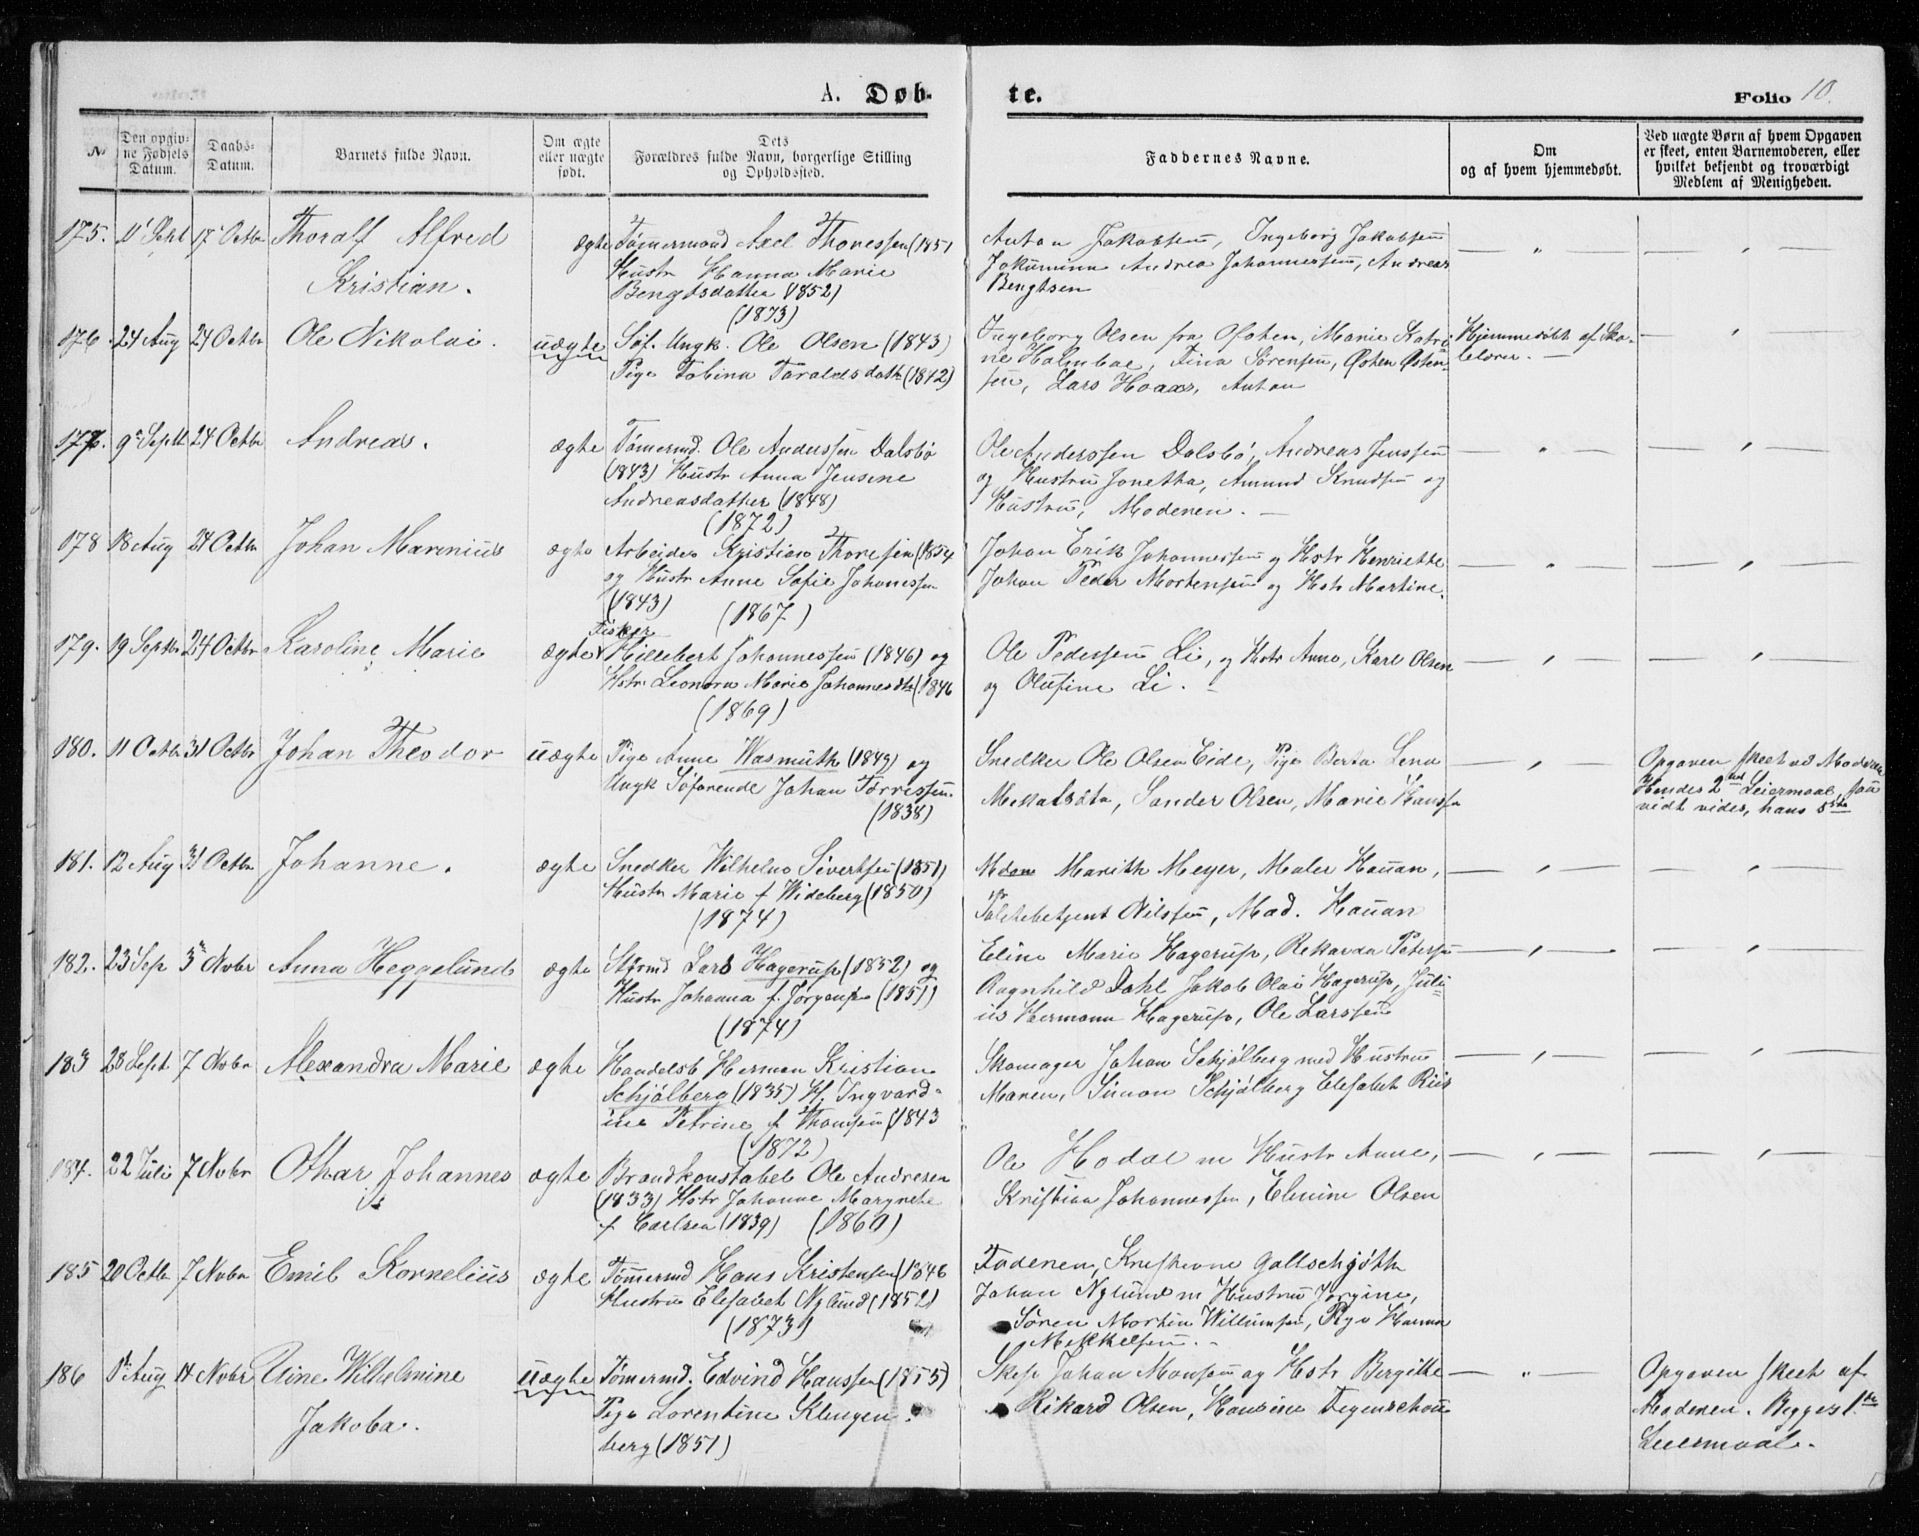 A. Døb- te.
Folio 10.
№
Den opgiv-
ne Fødsels
Datum.
Daabs-
Datum.
Barnets fulde Navn.
Om ægte
eller uægte
født.
Dets
Forældres fulde Navn, borgerlige Stilling
og Opholdssted.
Faddernes Navne.
Om
og af hvem hjemmedøbt.
Ved uægte Børn af hvem Opgaven
er skeet, enten Barnemoderen, eller
hvilket bekjendt og troværdigt
Medlem af Menigheden.
175. 11' Sept 17' Octbr Thoralf Alfred
Kristian.
ægte
Tømermand Axel Thoressen (1851
Hustr Hanna Marie
Bengtsdatter (1852)
(1873)
Anton Jakobsen, Ingeborg Jakobsen
Jakumina Andrea Johannessen, Andreas
Bengtsen
176. 24 Aug 24 Octbr Ole Nikolai.
uægte
Søf. Ungk. Ole Olsen (1843)
Pige Tobina Taraldsdatr (1842)
Ingeborg Olsen fra Østen, Marie Katri-
ne Holmboe, Tina Sørensen, Østen Østen-
sen, Lars Hoaas, Anton
Hjemmedøbt af Sko-
lelærer. —
177. 9' Septb 24 Octbr Andreas.
ægte
Tømermd. Ole Anderssen Dalsbø
(1843) Hustr Anna Jensine
Andreasdatter (1848)
(1872)
Ole Anderssen Dalsbø, Andreas Jenssen
og Hustru Jonetha, Amund Knudsen og
Hustru, Moderen. —
178 18 Aug 24 Octbr Johan Marinius
ægte
Arbeider Kristian Thoresen (1854
og Hustr Anne Sofie Johanssen
(1843) (1867)
Johan Erik Johannessen og Hstr Henriette
Johan Peder Mortensen og Hstr Martine.
179. 19 Septbr 24 Octbr Karoline Marie
ægte
Fisker
Hillebert Johannessen (1846) og
Hstr. Leonora Marie Johannesdtr (1846
(1869)
Ole Pedersen Li, og Hstr Anne, Karl Olsen
og Olufine Li. —
180. 11 Octbr 31 Octbr Johan Theodor
uægte
Pige Anne Wasmuth (1849) og
Ungk Søfarende Johan Torrissen
(1838)
Snedker Ole Olsen Eide, Pige Berta Lena
Sander Olsen, Marie Hanssen
Opgaven skeet ved Moderen
Hendes 2det Leiermaal, saa
vidt vides, hans 5te
181. 12 Aug 31 Octbr Johanne.
ægte
Snedker Wilhelm Sivertsen (1851)
Hustr Marie f Wideberg (1850)
(1874)
Mdm Marith Meyer, Maler Hauan,
Politibetjent Nilssen, Mad. Hauan
182. 23 Sep 5' Novbr Anna Heggelund
ægte
Styrmd Lars Hagerup (1852) og
Hustr Johanna f. Jørgensen (1851)
(1874)
Eline Marie Hagerup, Rikarda Petersen
Ragnhild Dahl Jakob Olai Hagerup, Juli-
us Hermann Hagerup, Ole Larssen
183 28 Sept 7 Novbr Alexandra Marie
ægte
Handelsb Herman Kristian
Schjølberg (1835) H. Ingvard-
ine Petrine f Thomsen (1843
(1872)
Skomager Johan Schjølberg med Hustru
Maren, Simon Schjølberg Elisabet Riis
184. 22 Juli 7 Novbr Othar Johannes
ægte
Brandkonstabel Ole Andresen
(1833) Hstr Johanne Margrete
f Carlsen (1839) (1860)
Ole Hodal m Hustr Anne,
Kristian Johannessen, Elenine Olsen
185 20 Octbr 7 Novbr Emil Kornelius
ægte
Tømermd Hans Kristensen (1846
Hustru Elisabet Nylund (1852)
(1873)
Faderen, Kristiane Galtschjøtt
Johan Nylund m Hustru Jorgine,
Søren Morten Willumsen, Pige Hanna
Mikkelsen. —
186 1ste Aug 14 Novbr Stine Wilhelmine
Jakoba.
uægte
Tømermd. Edvind Hanssen (1855)
Pige Lorentine Klingen-
berg (1851)
Skip Johan Monsen og Hstr Bergitte
Rikard Olsen, Hansine Figenschou
Opgaven skeet af
Moderen. Begges 1ste
Leiermaal.